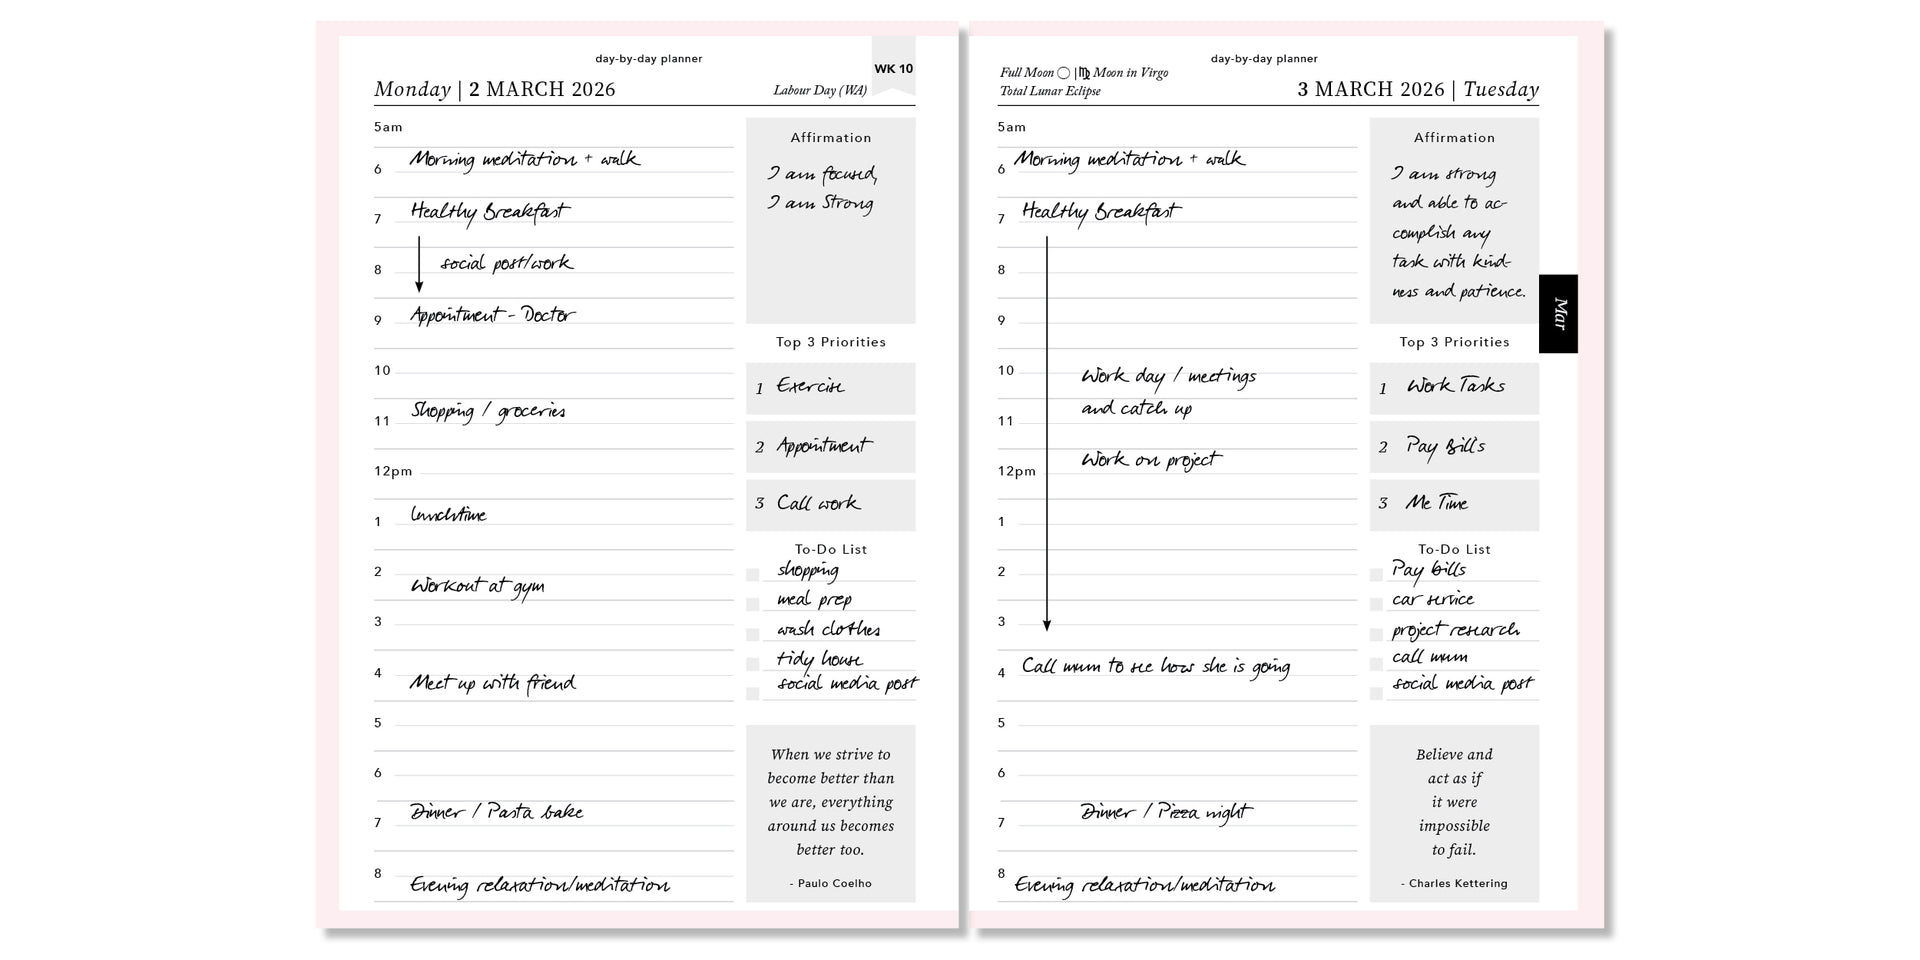 day-by-day planner
WK 10
Monday | 2 MARCH 2026
Labour Day (WA)
5am
6 Morning meditation + walk
7 Healthy Breakfast
8 social post/work
9 Appointment - Doctor
10
11 Shopping / groceries
12pm
1 Lunchtime
2 Workout at gym
3
4 Meet up with friend
5
6
7 Dinner / Pasta bake
8 Evening relaxation/meditation
Affirmation
I am focused,
I am Strong
Top 3 Priorities
1 Exercise
2 Appointment
3 Call work
To-Do List
shopping
meal prep
wash clothes
tidy house
social media post
When we strive to
become better than
we are, everything
around us becomes
better too.
- Paulo Coelho
day-by-day planner
Full Moon ○ |♍ Moon in Virgo
Total Lunar Eclipse
3 MARCH 2026 | Tuesday
5am
6 Morning meditation + walk
7 Healthy Breakfast
8
9
10 Work day / meetings
and catch up
11
12pm Work on project
1
2
3
4 Call mum to see how she is going
5
6
7 Dinner / Pizza night
8 Evening relaxation/meditation
Affirmation
I am strong
and able to ac-
complish any
task with kind-
ness and patience.
Mar
Top 3 Priorities
1 Work Tasks
2 Pay Bills
3 Me Time
To-Do List
Pay bills
car service
project research
call mum
social media post
Believe and
act as if
it were
impossible
to fail.
- Charles Kettering